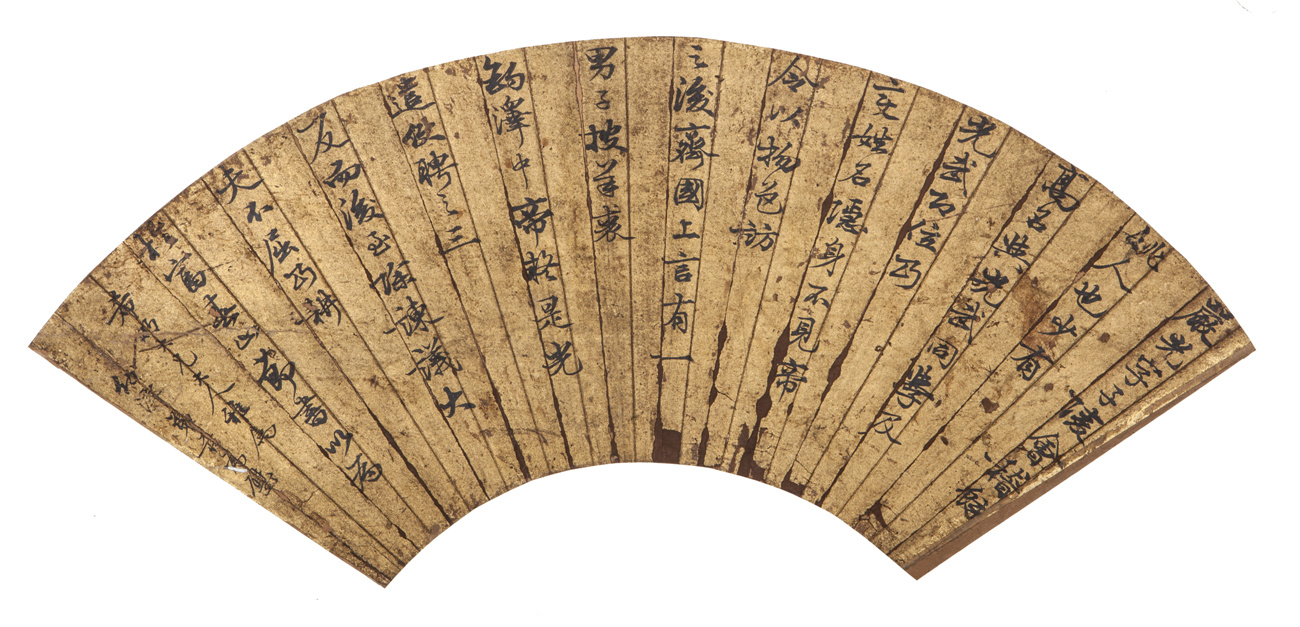 嚴光字子陵會稽餘
姚人也少有
高名與光武同學及
光武即位乃
變姓名隱身不見帝
令以物色訪
之後齊國上言有一
男子披羊裘
釣澤中帝疑是光
遣使聘之三
反而後至除諫議大
夫不屈乃耕
於富春山